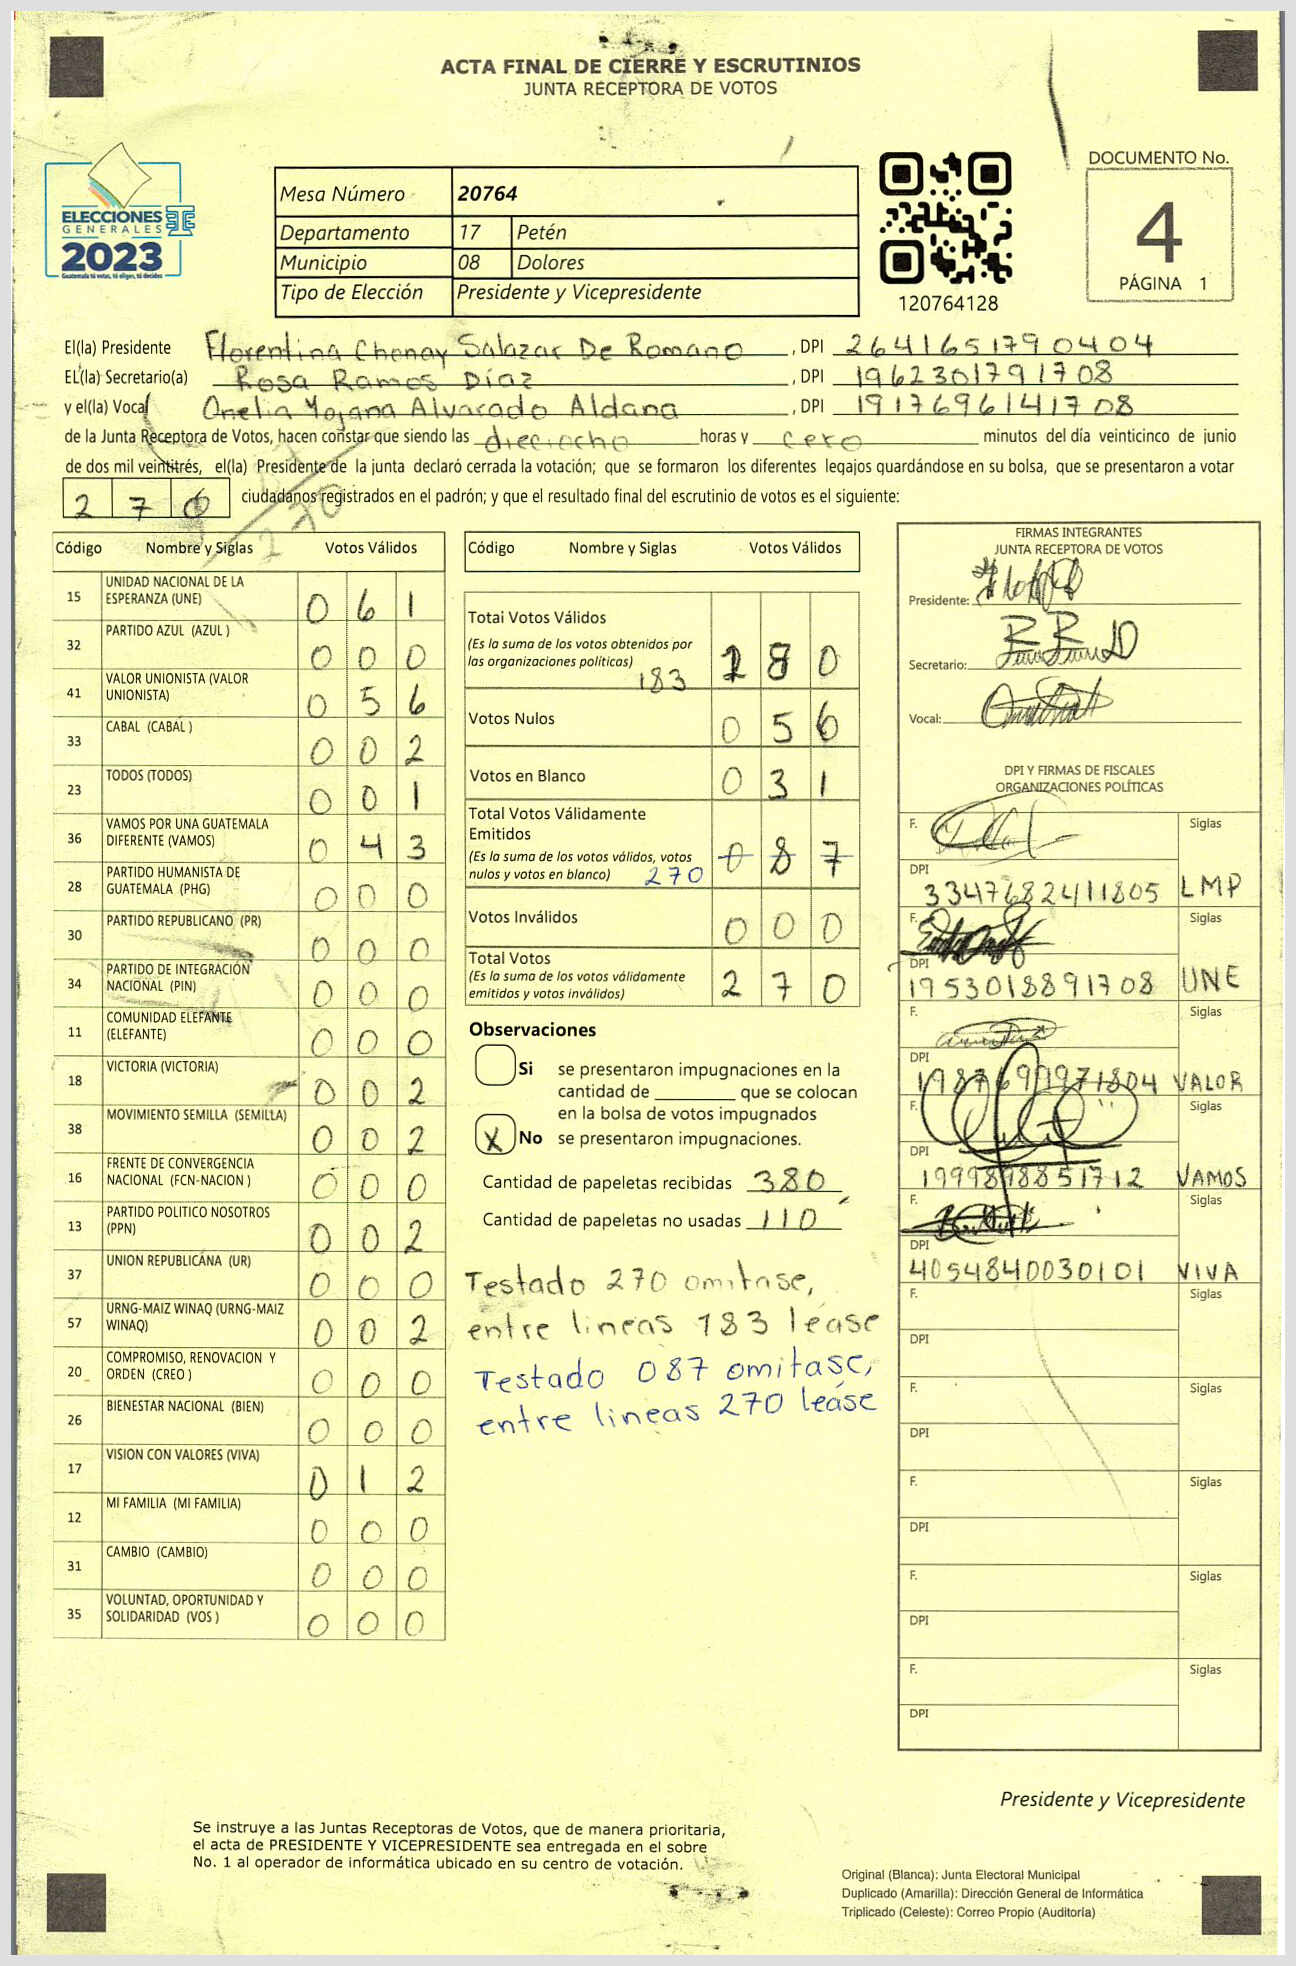 ACTA FINAL DE CIERRE Y ESCRUTINIOS
JUNTA RECEPTORA DE VOTOS
ELECCIONES
GENERALES
2023
Guatemala tú votas, tú eliges, tú decides
Mesa Número 20764
Departamento 17 Petén
Municipio 08 Dolores
Tipo de Elección Presidente y Vicepresidente
120764128
DOCUMENTO No.
4
PÁGINA 1
El(la) Presidente Florentina Chonay Salazar De Romano, DPI 2641651790404
EL(la) Secretario(a) Rosa Ramos Díaz, DPI 1962301791708
y el(la) Vocal Onelia Yojana Alvarado Aldana, DPI 1917696141708
de la Junta Receptora de Votos, hacen constar que siendo las dieciocho horas y cero minutos del día veinticinco de junio
de dos mil veintitrés, el(la) Presidente de la junta declaró cerrada la votación; que se formaron los diferentes legajos guardándose en su bolsa, que se presentaron a votar
270 ciudadanos registrados en el padrón; y que el resultado final del escrutinio de votos es el siguiente:
270
Código Nombre y Siglas Votos Válidos
15 UNIDAD NACIONAL DE LA
ESPERANZA (UNE) 061
32 PARTIDO AZUL (AZUL ) 000
41 VALOR UNIONISTA (VALOR
UNIONISTA) 056
33 CABAL (CABAL ) 002
23 TODOS (TODOS) 001
36 VAMOS POR UNA GUATEMALA
DIFERENTE (VAMOS) 043
28 PARTIDO HUMANISTA DE
GUATEMALA (PHG) 000
30 PARTIDO REPUBLICANO (PR) 000
34 PARTIDO DE INTEGRACIÓN
NACIONAL (PIN) 000
11 COMUNIDAD ELEFANTE
(ELEFANTE) 000
18 VICTORIA (VICTORIA) 002
38 MOVIMIENTO SEMILLA (SEMILLA) 002
16 FRENTE DE CONVERGENCIA
NACIONAL (FCN-NACION ) 000
13 PARTIDO POLITICO NOSOTROS
(PPN) 002
37 UNION REPUBLICANA (UR) 000
57 URNG-MAIZ WINAQ (URNG-MAIZ
WINAQ) 002
20 COMPROMISO, RENOVACION Y
ORDEN (CREO ) 000
26 BIENESTAR NACIONAL (BIEN) 000
17 VISION CON VALORES (VIVA) 012
12 MI FAMILIA (MI FAMILIA) 000
31 CAMBIO (CAMBIO) 000
35 VOLUNTAD, OPORTUNIDAD Y
SOLIDARIDAD (VOS ) 000
Código Nombre y Siglas Votos Válidos
Total Votos Válidos
(Es la suma de los votos obtenidos por
las organizaciones politicas) 80
183
Votos Nulos 056
Votos en Blanco 031
Total Votos Válidamente
Emitidos
(Es la suma de los votos válidos, votos 087
nulos y votos en blanco) 270
Votos Inválidos 000
Total Votos
(Es la suma de los votos válidamente
emitidos y votos inválidos) 270
Observaciones
Si se presentaron impugnaciones en la
cantidad de ________ que se colocan
en la bolsa de votos impugnados
X No se presentaron impugnaciones.
Cantidad de papeletas recibidas 380
Cantidad de papeletas no usadas 110
Testado 270 omitase,
entre lineas 183 lease
Testado 087 omitase,
entre lineas 270 leáse
FIRMAS INTEGRANTES
JUNTA RECEPTORA DE VOTOS
Presidente:
Secretario:
Vocal:
DPI Y FIRMAS DE FISCALES
ORGANIZACIONES POLÍTICAS
F. Siglas
DPI
3347682411805 LMP
F. Siglas
DPI
1953018891708 UNE
F. Siglas
DPI
1987699971804 VALOR
F. Siglas
DPI
1999898851712 VAMOS
F. Siglas
DPI
4054840030101 VIVA
F. Siglas
DPI
F. Siglas
DPI
F. Siglas
DPI
F. Siglas
DPI
F. Siglas
DPI
Presidente y Vicepresidente
Se instruye a las Juntas Receptoras de Votos, que de manera prioritaria,
el acta de PRESIDENTE Y VICEPRESIDENTE sea entregada en el sobre
No. 1 al operador de informática ubicado en su centro de votación.
Original (Blanca): Junta Electoral Municipal
Duplicado (Amarilla): Dirección General de Informática
Triplicado (Celeste): Correo Propio (Auditoría)